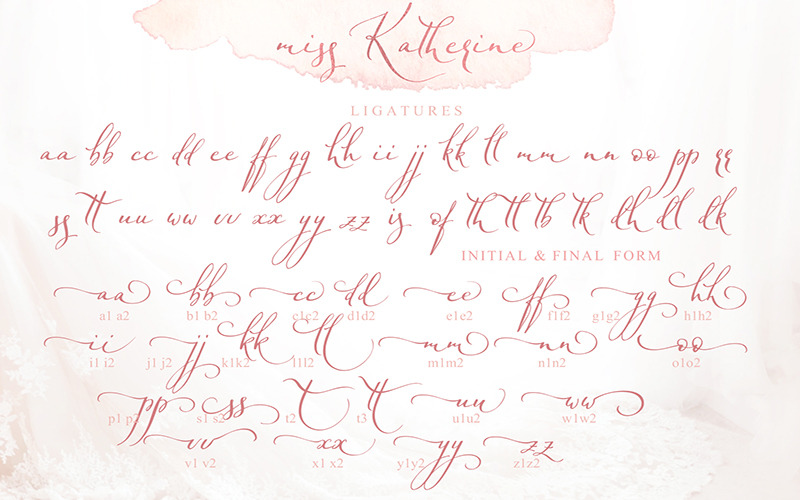 miss Katherine
LIGATURES
aa bb cc dd ee ff gg hh ii jj kk ll mm nn oo pp rr
ss tt uu ww vv xx yy zz is of th tl tb tk dh dl dk
INITIAL & FINAL FORM
aa bb cc dd ee ff gg hh
a1 a2 b1 b2 c1c2 d1d2 e1e2 f1f2 g1g2 h1h2
ii jj kk ll mm nn oo
i1 i2 j1 j2 k1k2 l1l2 m1m2 n1n2 o1o2
pp ss t tt uu ww
p1 p2 s1 s2 t2 t3 u1u2 w1w2
vv xx yy zz
v1 v2 x1 x2 y1y2 z1z2